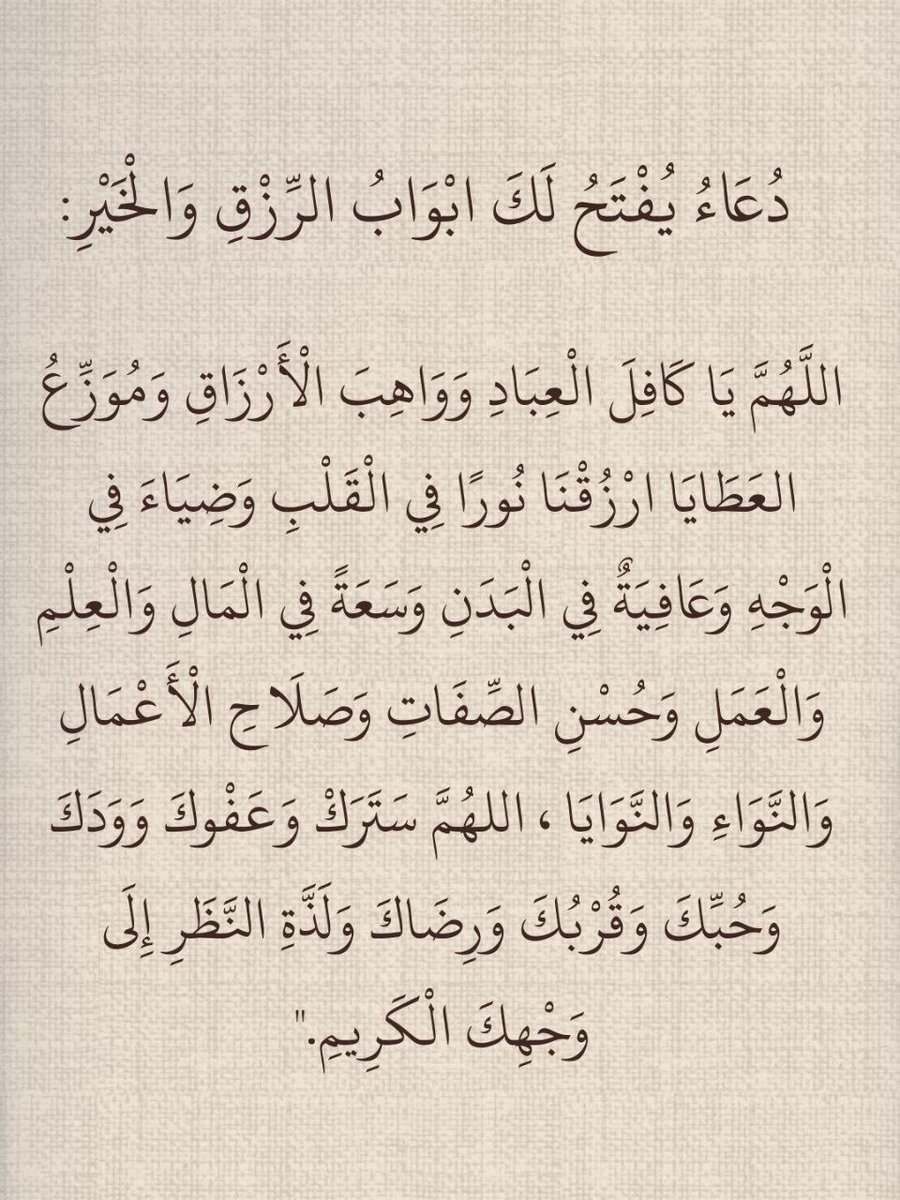 دُعَاءُ يُفْتَحُ لَكَ ابْوَابُ الرِّزْقِ وَالْخَيْرِ:
اللَّهُمَّ يَا كَافِلَ الْعِبَادِ وَوَاهِبَ الْأَرْزَاقِ وَمُوَزِّعُ
العَطَايَا ارْزُقْنَا نُورًا فِي الْقَلْبِ وَضِيَاءَ فِي
الْوَجْهِ وَعَافِيَةٌ فِي الْبَدَنِ وَسَعَةً فِي الْمَالِ وَالْعِلْمِ
وَالْعَمَلِ وَحُسْنِ الصِّفَاتِ وَصَلَاحِ الْأَعْمَالِ
وَالنَّوَاءِ وَالنَّوَايَا ، اللهُمَّ سَتَرَكْ وَعَفْوكَ وَوَدَكَ
وَحُبِّكَ وَقُرْبُكَ وَرِضَاكَ وَلَذَّةِ النَّظَرِ إِلَى
وَجْهِكَ الْكَرِيمِ."